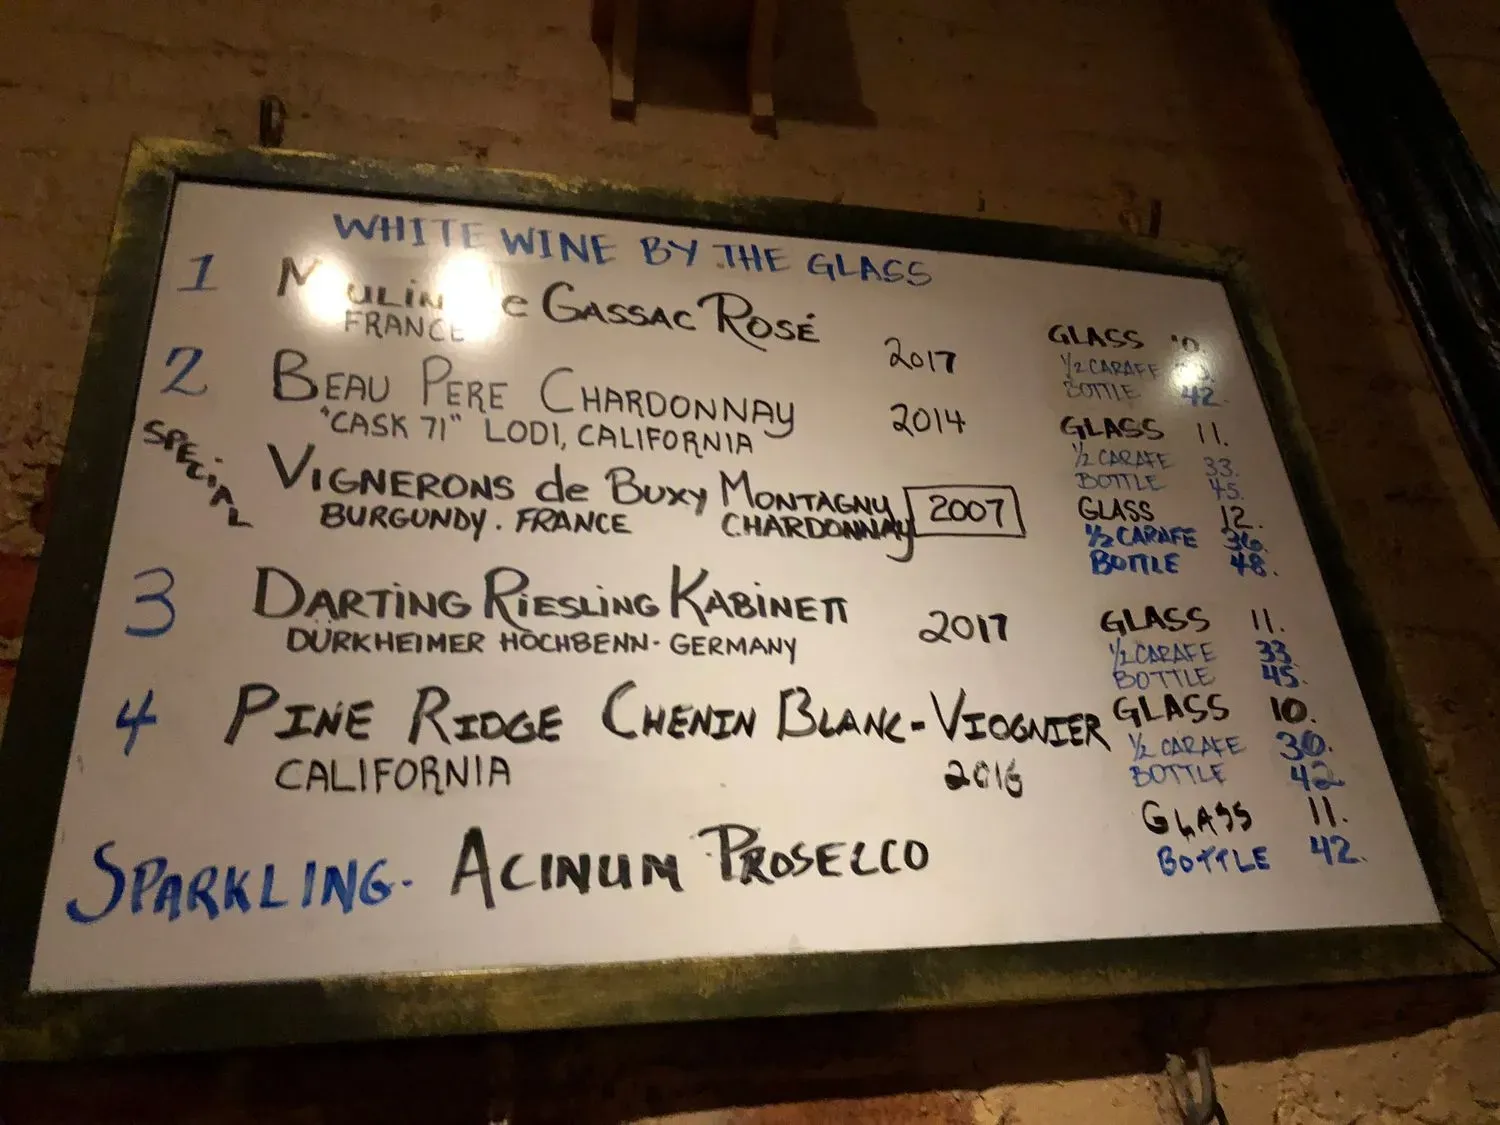 WHITE WINE BY THE GLASS
1 Gassac Rosé 2017 GLASS
FRANCE ½ CARAFE
BOTTLE 42.
2 BEAU PERE CHARDONNAY 2014 GLASS 11.
"CASK 71" LODI, CALIFORNIA ½ CARAFE 33.
BOTTLE 45.
SPECIAL VIGNERONS de BUXY MONTAGNY 2007 GLASS 12.
BURGUNDY. FRANCE CHARDONNAY ½ CARAFE 36.
BOTTLE 48.
3 DARTING RIESLING KABINETT 2017 GLASS 11.
DÜRKHEIMER HOCHBENN - GERMANY ½ CARAFE 33.
BOTTLE 45.
4 PINE RIDGE CHENIN BLANC - VIOGNIER GLASS 10.
CALIFORNIA 2016 ½ CARAFE 30.
BOTTLE 42
SPARKLING - ACINUM PROSECCO GLASS 11.
BOTTLE 42.